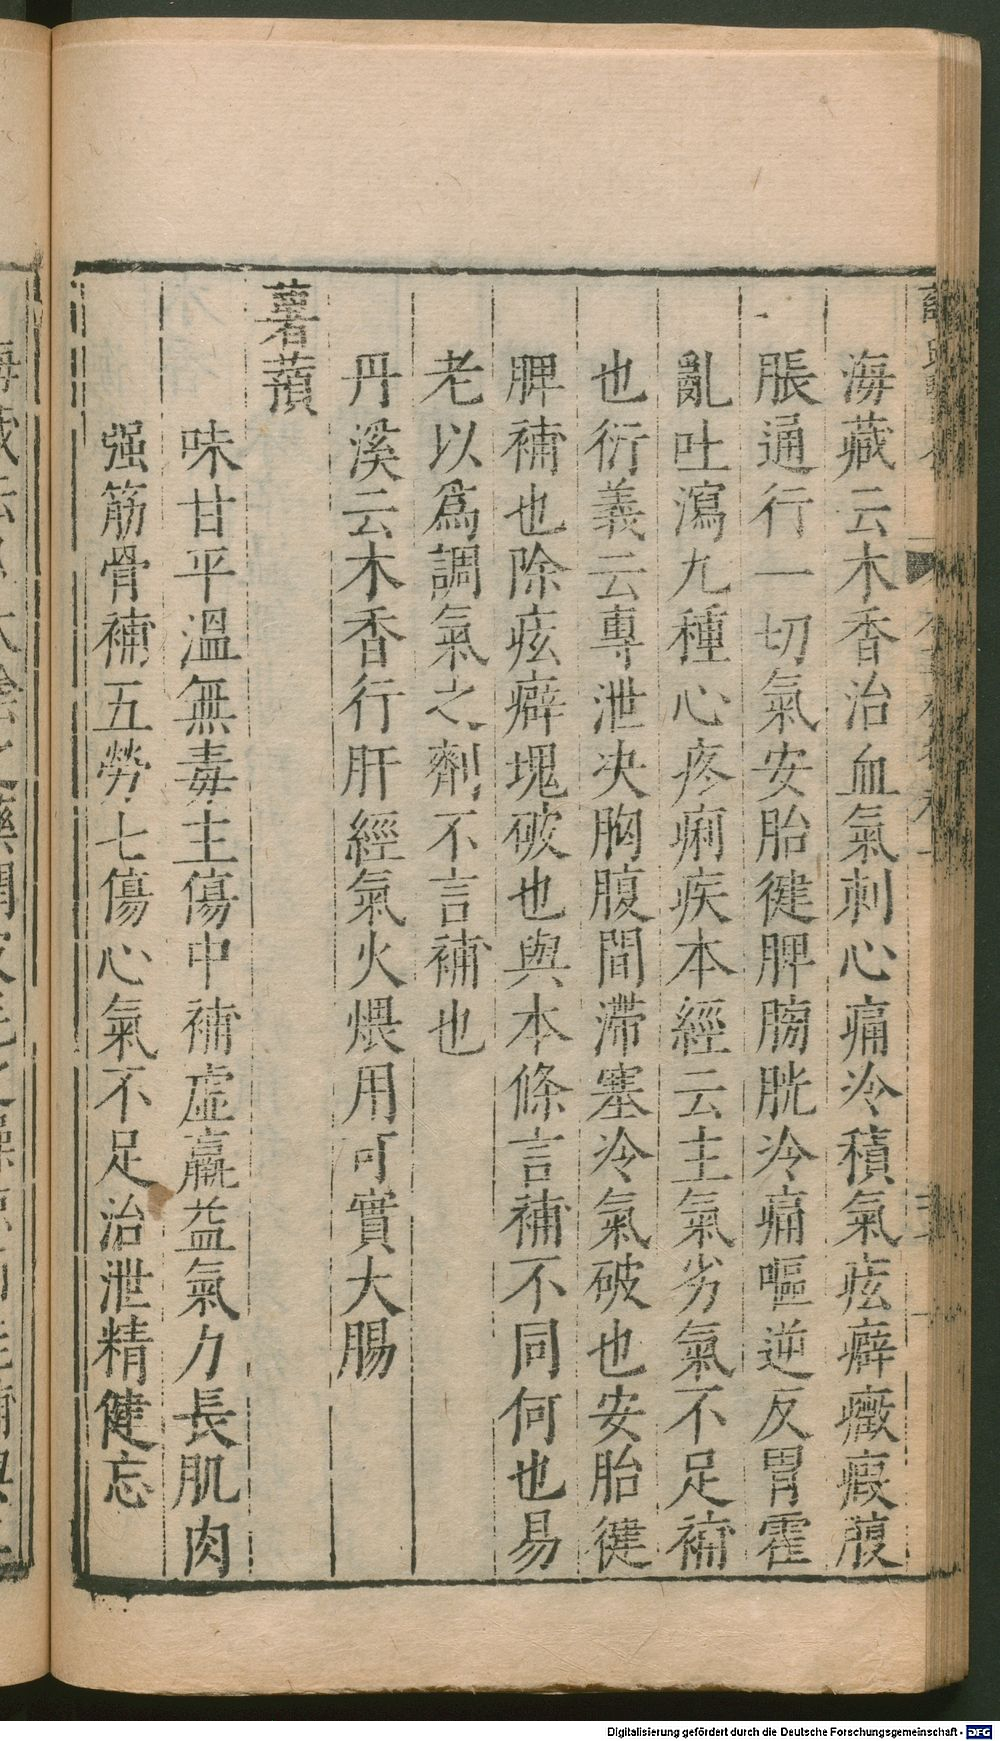 海藏云木香治血氣刺心痛冷積氣痃癖癥瘕腹
脹通行一切氣安胎健脾膀胱冷痛嘔逆反胃霍
亂吐瀉九種心疼痢疾本經云主氣劣氣不足補
也衍義云專泄決胸腹間滯塞冷氣破也安胎健
脾補也除痃癖塊破也與本條言補不同何也易
老以爲調氣之劑不言補也
丹溪云木香行肝經氣火煨用可實大腸
薯蕷
味甘平溫無毒主傷中補虛羸益氣力長肌肉
强筋骨補五勞七傷心氣不足治泄精健忘
Digitalisierung gefördert durch die Deutsche Forschungsgemeinschaft - DFG